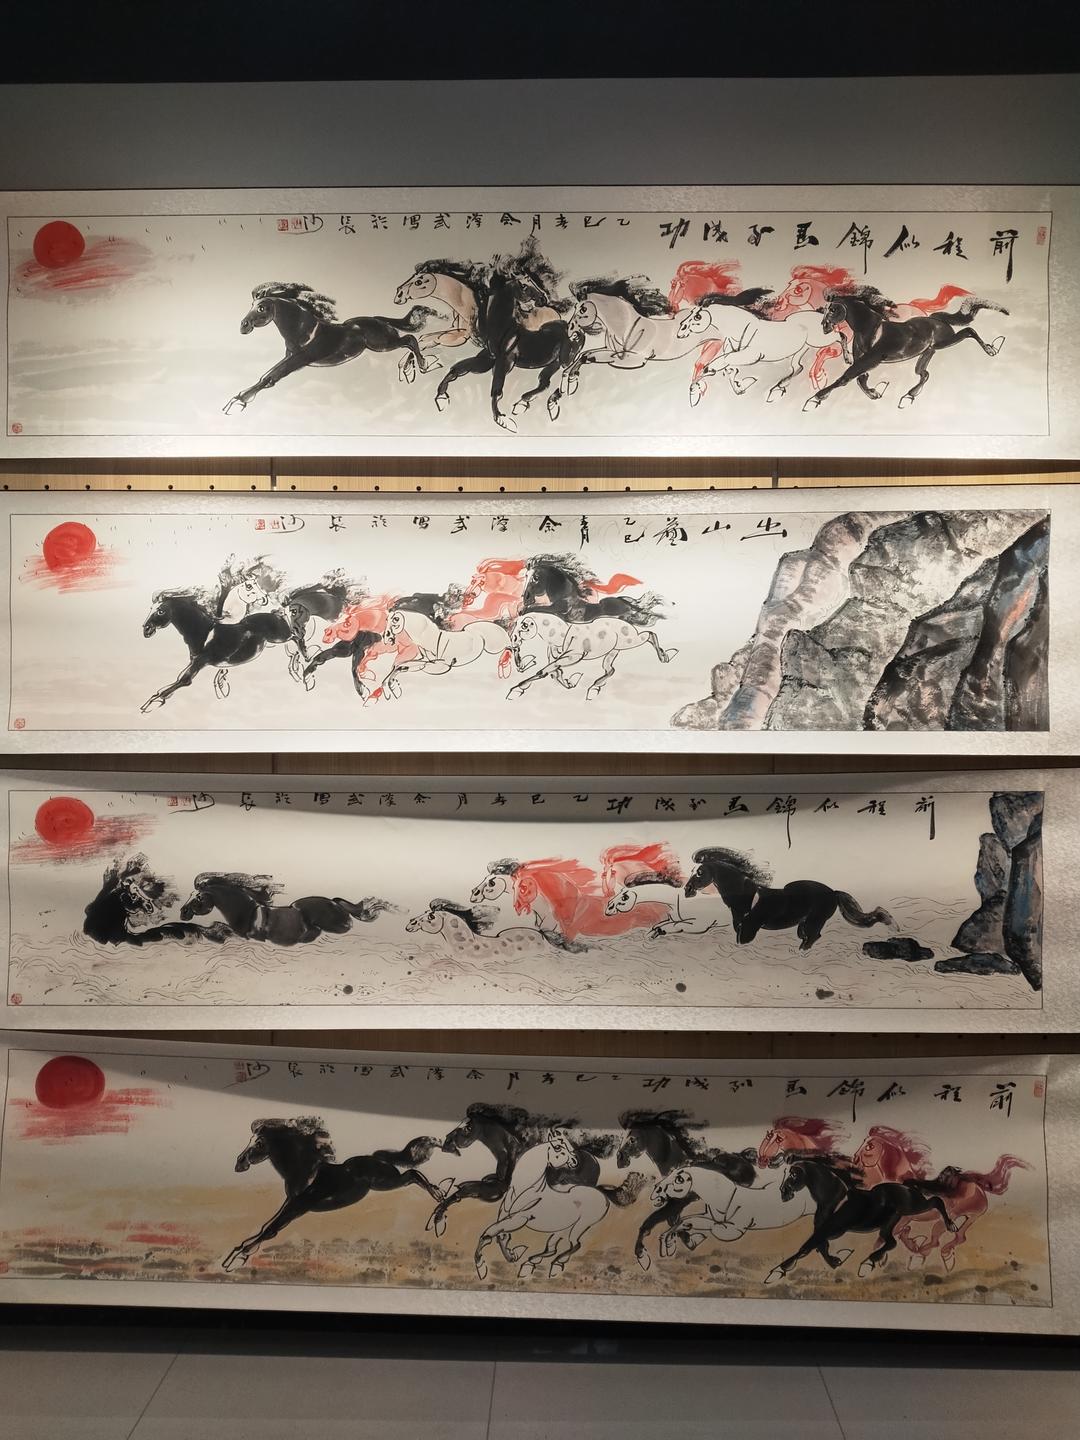 前程似錦馬到成功 乙巳春月余澤武寫於長沙
出山 乙巳春月余澤武寫於長沙
前程似錦馬到成功 乙巳春月余澤武寫於長沙
前程似錦馬到成功 乙巳春月余澤武寫於長沙